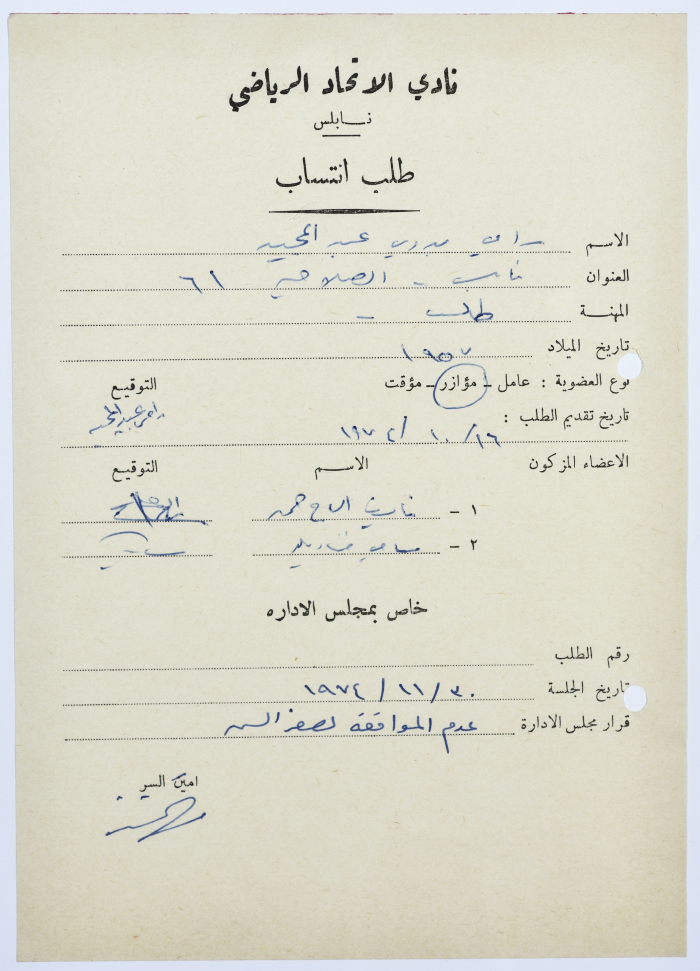 نادي الاتحاد الرياضي
نابلس
طلب انتساب
الاسم رامي بدوي عبد المجيد
العنوان نابلس - الصلاحية ٦١
المهنة طالب -
تاريخ الميلاد ١٩٥٧
نوع العضوية : عامل - مؤازر - مؤقت التوقيع
تاريخ تقديم الطلب : ١٦/١٠/١٩٧٤ رامي عبد المجيد
الاعضاء المزكون الاسم التوقيع
١ - الحاج حمد
٢ - سامي
خاص بمجلس الاداره
رقم الطلب
تاريخ الجلسة ٣٠/١١/١٩٧٤
قرار مجلس الادارة عدم الموافقة لصغر السن
امين السر